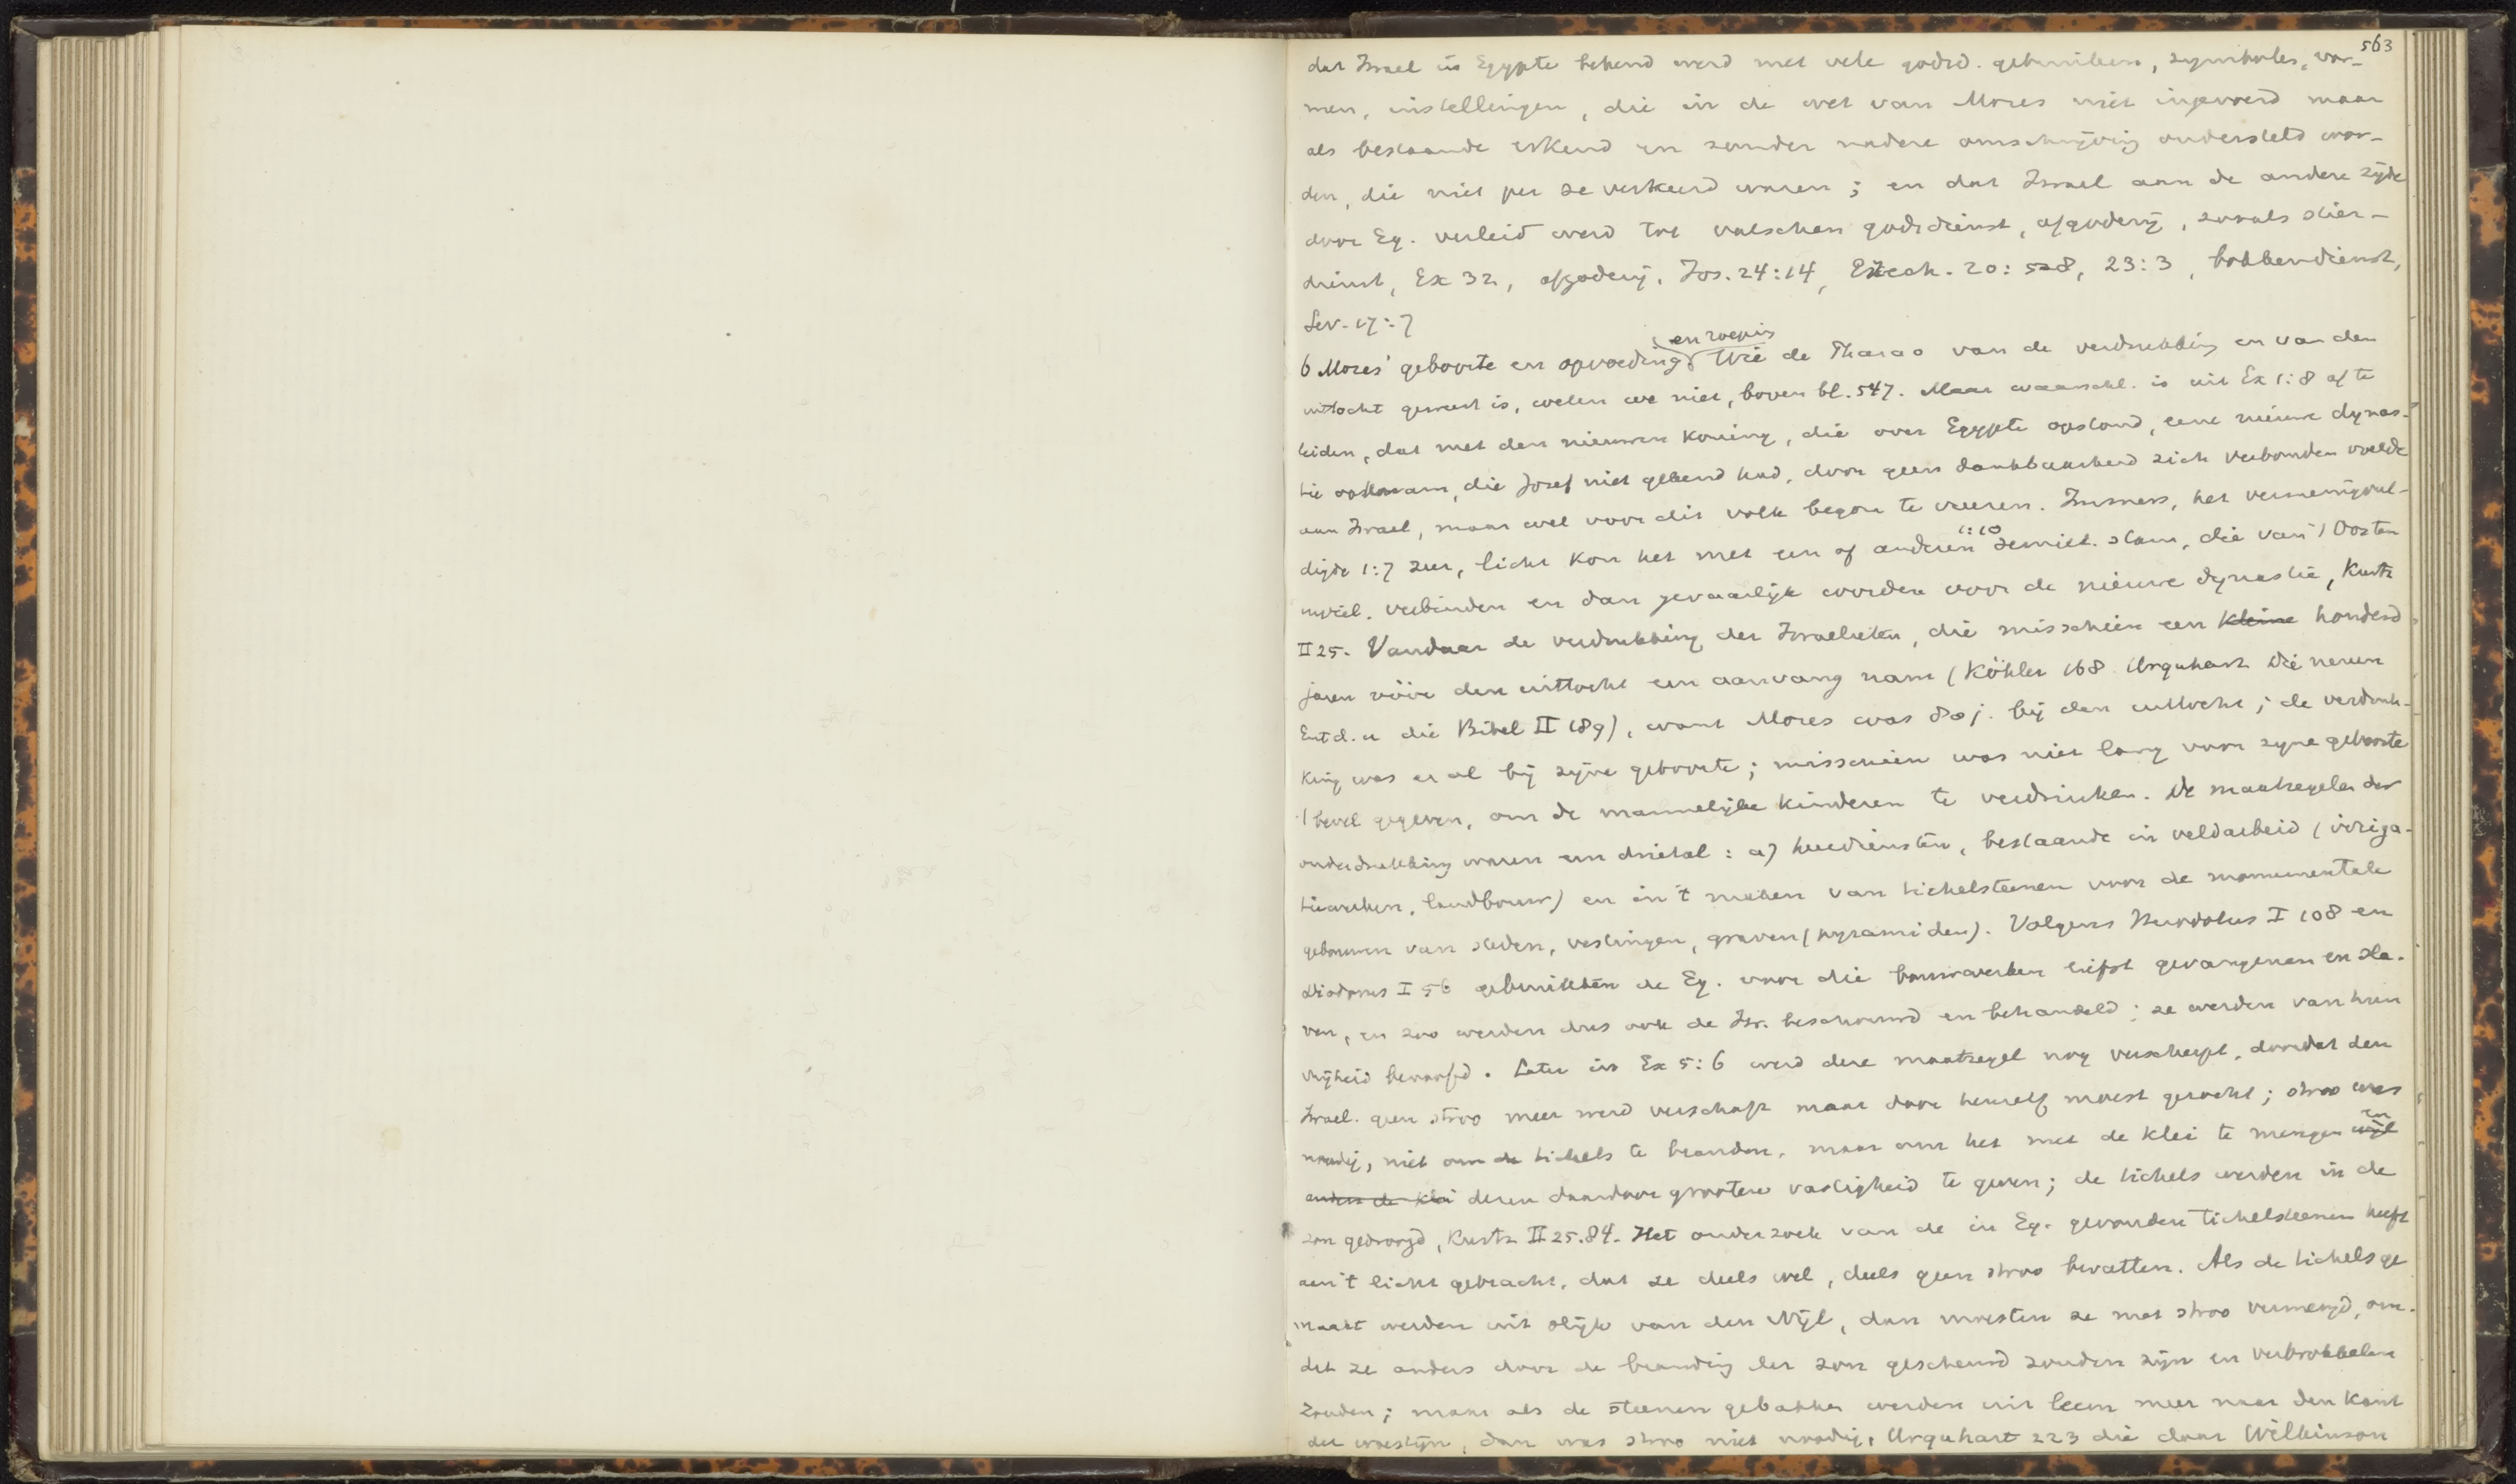 563
dat Israel in Egypte bekend werd met vele godsd. gebruiken, symbolen, vor-
men, instellingen, die in de wet van Mozes niet ingevoerd maar
als bestaande erkend en zonder nadere omschrijving ondersteld wor-
den, die niet per se verkeerd waren; en dat Israel aan de andere zijde
door Eg. verleid werd tot valschen godsdienst, afgoderij, zooals stier-
dienst, Ex 32, afgoderij, Jos. 24:14, Ezech. 20:8, 23:3, bokkendienst,
Lev. 17:7
6 Mozes' geboorte en opvoeding en roeping Wie de Pharao van de verdrukking en van den
uittocht geweest is, weten we niet, boven bl. 547. Maar waarschl. is uit Ex 1:8 af te
leiden, dat met den nieuwen koning, die over Egypte opstond, eene nieuwe dynas-
tie opkwam, die Jozef niet gekend had, door geen dankbaarheid zich verbonden voelde
aan Israel, maar wel voor dit volk begon te vreezen. Immers, het vermenigvul-
digde 1:7 zeer, licht kon het met een of anderen 1:10 semiet. stam, die van 't Oosten
inviel. verbinden en dan gevaarlijk worden voor de nieuwe dynastie, Kurtz
II 25. Vandaar de verdrukking der Israelieten, die misschien een kleine honderd
jaren vóór den uittocht een aanvang nam (Köhler 168 Urquhart Die neuen
Entd. u die Bibel II 189), want Mozes was 80 j. bij den uittocht; de verdruk-
king was er al bij zijne geboorte; misschien was niet lang voor zijne geboorte
't bevel gegeven, om de mannelijke kinderen te verdrinken. De maatregelen der
onderdrukking waren een drietal: a) heerdiensten, bestaande in veldarbeid (irriga-
tiewerken, landbouw) en in 't maken van tichelsteenen voor de monumentale
gebouwen van steden, vestingen, graven (pyramiden). Volgens Herodotus I 108 en
Diodorus I 56 gebruikten de Eg. voor die bouwwerken liefst gevangenen en sla-
ven, en zoo werden dus ook de Isr. beschouwd en behandeld; ze werden van hun
vrijheid beroofd. Later in Ex 5:6 werd deze maatregel nog verscherpt, doordat den
Israel. geen stroo meer werd verschaft maar door henzelf moest gezocht; stroo was
noodig, niet om de tichels te branden, maar om het met de klei te mengen wijl en
anders de klei dezen daardoor grootere vastigheid te geven; de tichels werden in de
zon gedroogd, Kurtz II 25.84. Het onderzoek van de in Eg. gevonden tichelsteenen heeft
aan 't licht gebracht, dat ze deels wel, deels geen stroo bevatten. Als de tichels ge
maakt werden uit slijk van den Nijl, dan moesten ze met stroo vermengd, om-
dat ze anders door de branding der zon gescheurd zouden zijn en verbrokkelen
zouden; maar als de steenen gebakken werden uit leem meer naar den kant
der woestijn, dan was stroo niet noodig, Urquhart 223 die daar Wilkinson